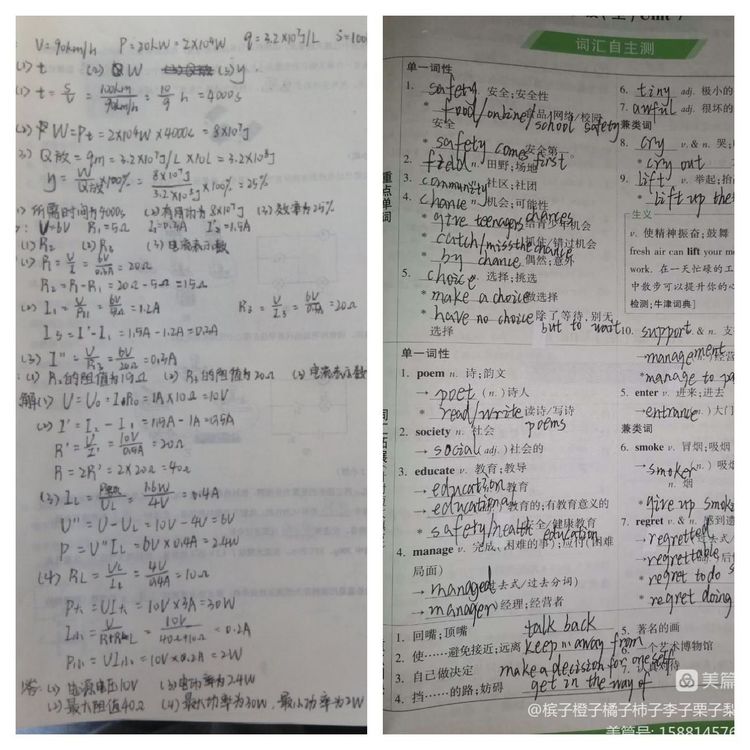 V=90km/h P=20kW=2×10⁴W q=3.2×10⁷J/L S=100
(1) t (2) W (3) y
(1) t=S/V=100km/90km/h=10/9 h=4000s
(2) W=Pt=2×10⁴W×4000s=8×10⁷J
3) Q放=qm=3.2×10⁷J/L×10L=3.2×10⁸J
y=W/Q放×100%=8×10⁷J/3.2×10⁸J×100%=25%
1) 所需时间为4000s (2)有用功为8×10⁷J (3)效率为25%
V=6V R₁=5Ω I=0.3A I'=1.5A
(1) R₂ (2) R₃ (3) 电流表示数
(1) R=V/I=6V/0.3A=20Ω
R₂=R-R₁=20Ω-5Ω=15Ω
(2) I₁=V/R₁=6V/5Ω=1.2A R₃=V/I₃=6V/0.3A=20Ω
I₃=I'-I₁=1.5A-1.2A=0.3A
(3) I''=V/R₃=6V/20Ω=0.3A
(1) R₂的阻值为15Ω (2) R₃的阻值为20Ω (3) 电流表示数
解(1) U=U₀=I₀R₀=1A×10Ω=10V
(2) I'=I₂-I₁=1.5A-1A=0.5A
R'=U/I'=10V/0.5A=20Ω
R=2R'=2×20Ω=40Ω
(3) I_L=P额/U_L=1.6W/4V=0.4A
U''=U-U_L=10V-4V=6V
P=U''I_L=6V×0.4A=2.4W
(4) R_L=U_L/I_L=4V/0.4A=10Ω
P大=UI大=10V×3A=30W
I小=U/R+R_L=10V/40Ω+10Ω=0.2A
P小=UI小=10V×0.2A=2W
答:(1) 电源电压10V (3)电功率为2.4W
(2)最大阻值40Ω (4)最大功率为30W,最小功率为2W
Unit 7
词汇自主测
单一词性
1. safety 安全;安全性
* food/online/school safety 食品/网络/校园安全
* safety comes first 安全第一。
2. field n. 田野;场地
3. community 社区;社团
4. chance n. 机会;可能性
* give teenagers chances 给青少年机会
* catch/miss the chance 抓住/错过机会
* by chance 偶然;意外
5. choice 选择;挑选
* make a choice 做选择
* have no choice but to wait 除了等待,别无选择
6. tiny adj. 极小的
7. awful adj. 很坏的
兼类词
8. cry v. & n. 哭;
* cry out
9. lift v. 举起;抬
* lift up the
生义
v. 使精神振奋;鼓舞
fresh air can lift your m
work. 在一天忙碌的工
中散步可以提升你的心
检测;牛津词典]
10. support & n. 支
重点单词
单一词性
1. poem n. 诗;韵文
→ poet (n.)诗人
* read/write poems 读诗/写诗
2. society n. 社会
→ social (adj.)社会的
3. educate v. 教育;教导
→ education 教育
→ educational 教育的;有教育意义的
* safety/health education 安全/健康教育
4. manage v. 完成(困难的事);应付(困难局面)
→ managed (过去式/过去分词)
→ manager 经理;经营者
→ management 经营
* manage to
5. enter v. 进来;进去
→ entrance (n.)大门
兼类词
6. smoke v. 冒烟;吸烟 n. 烟
→ smoker (n.) 吸烟
* give up smok
7. regret v. & n. 感到遗
→ regretted
→ regrettable
* regret to do s
* regret doing
1. 回嘴;顶嘴 talk back
2. 使……避免接近;远离 keep … away from
3. 自己做决定 make a decision for oneself
4. 挡……的路;妨碍 get in the way of
5. 著名的画
6. 一个艺术博物馆
7. 认真对待
美篇
@槟子橙子橘子柿子李子栗子梨
美篇号: 158814576